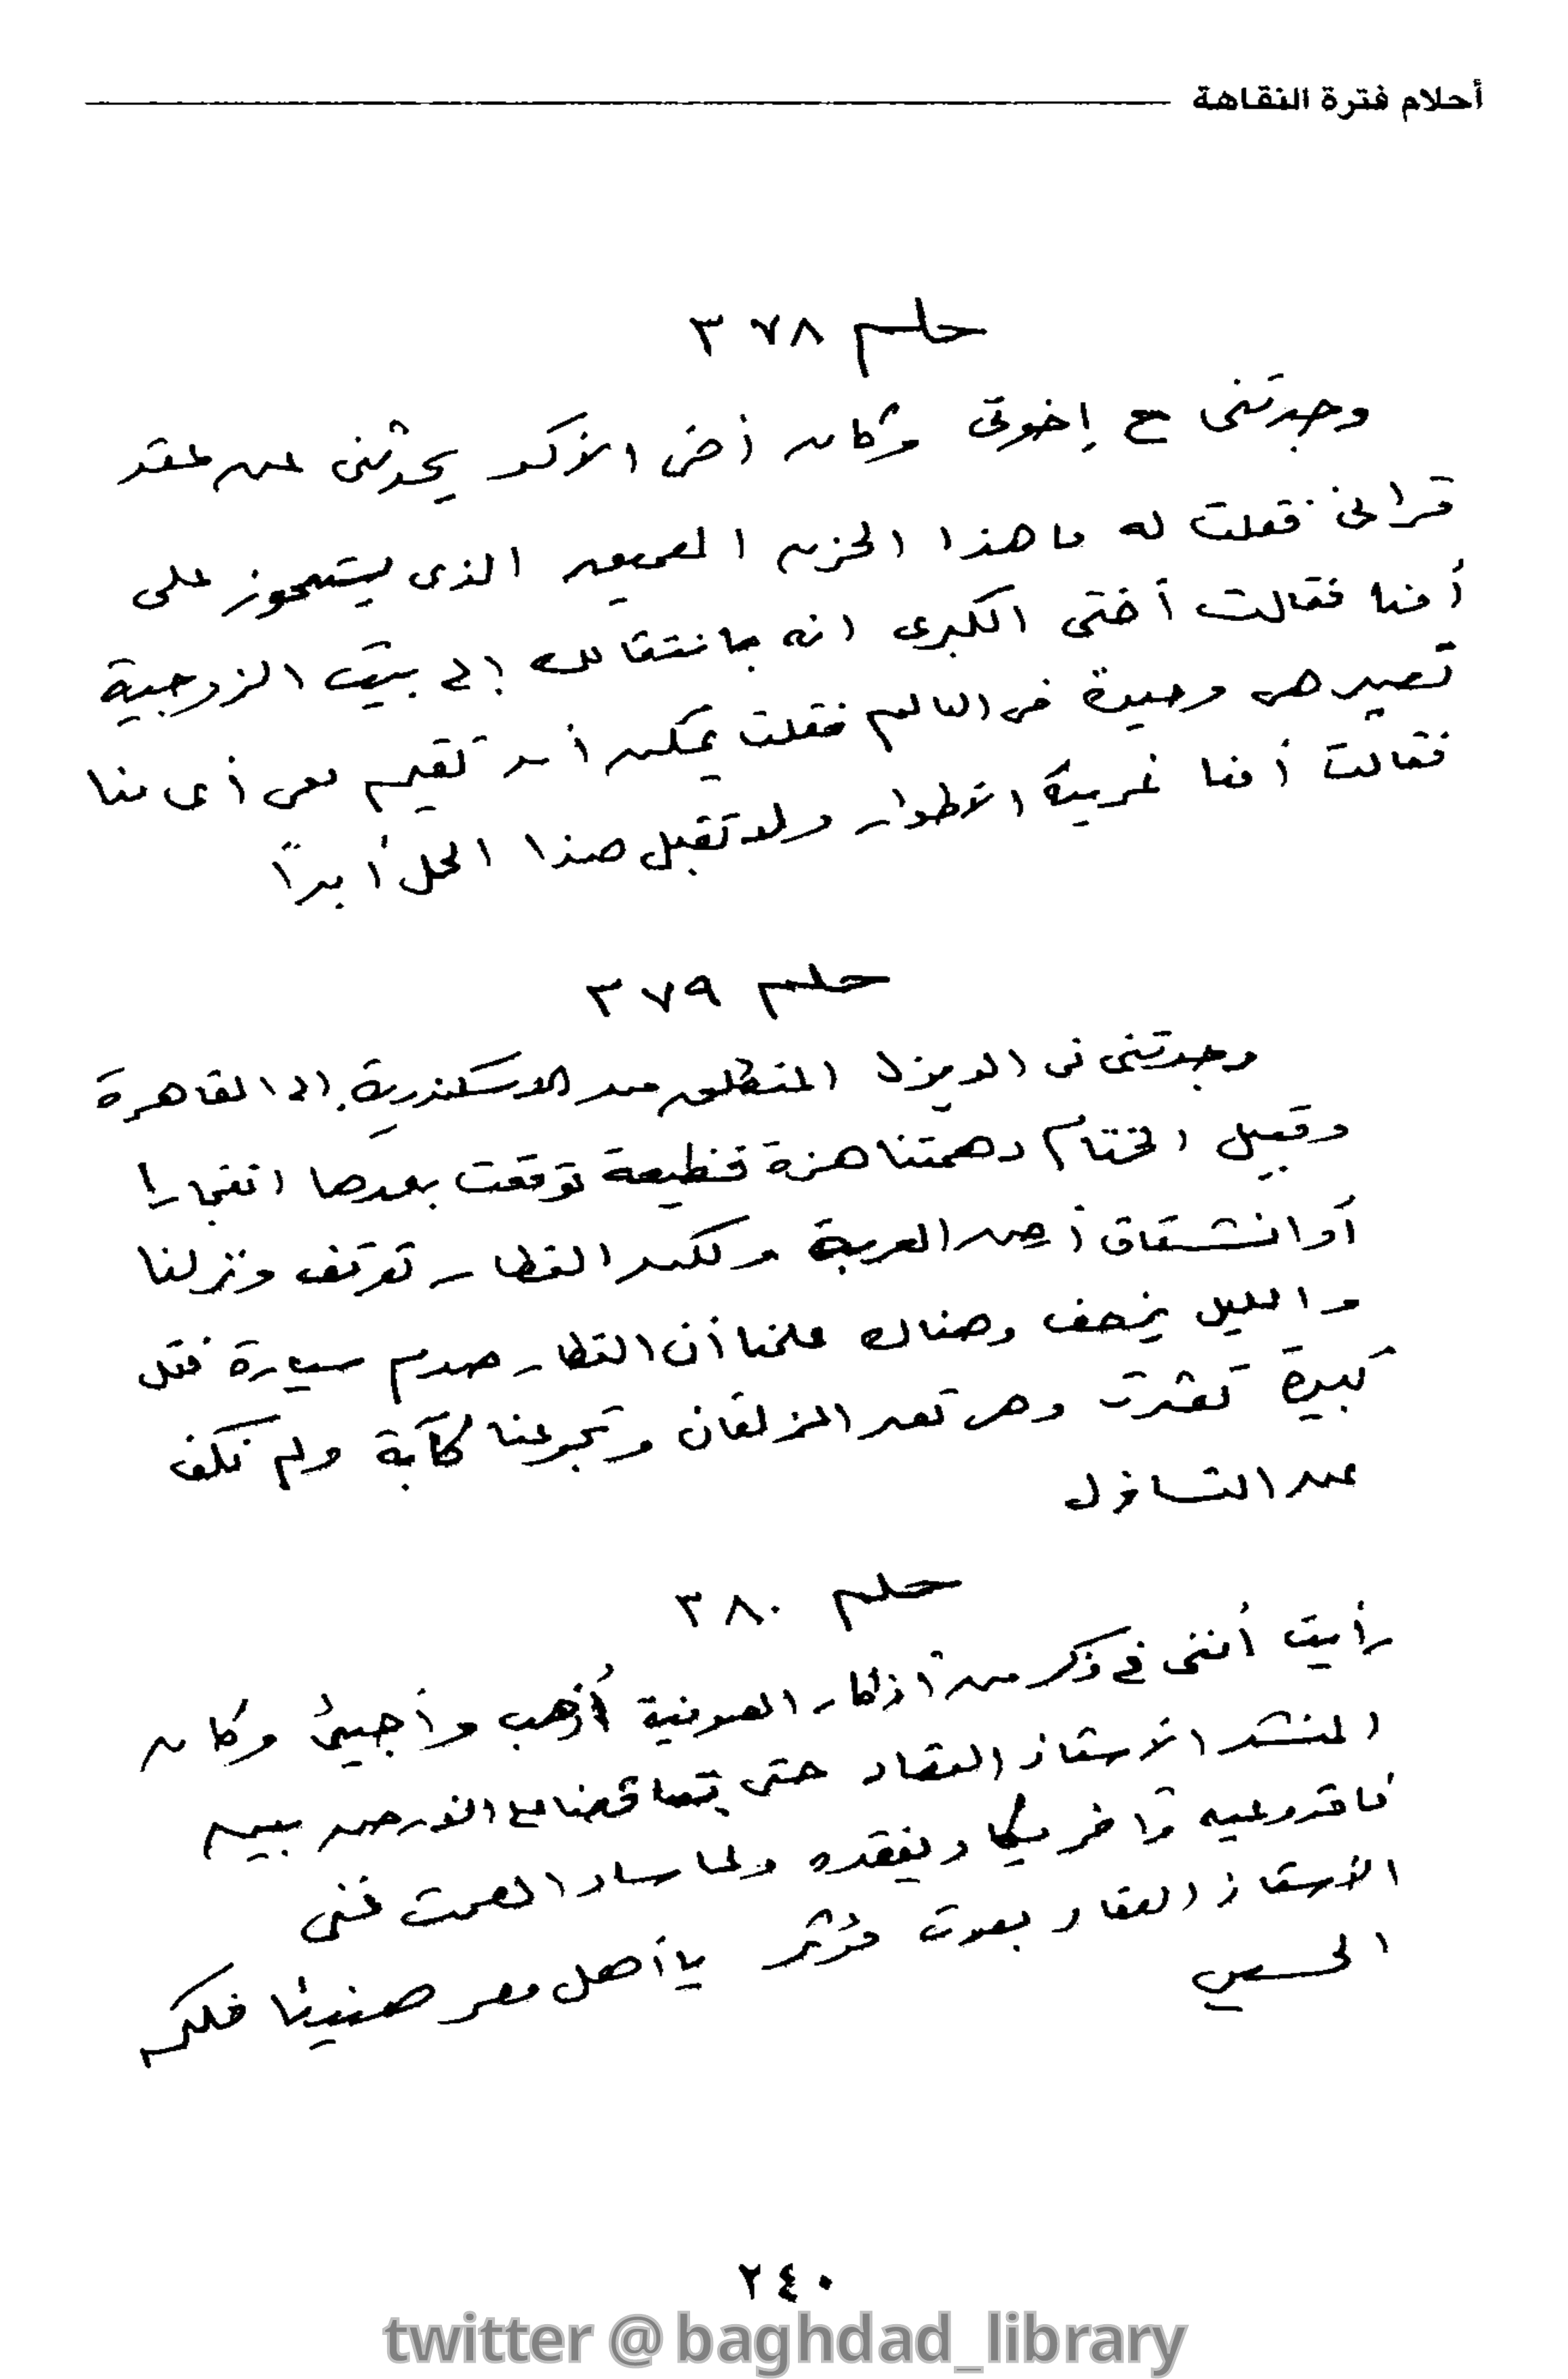 أحلام فترة النقاهة
حلم ٣٧٨
وجدتنى مع إخوتى وكان أخى الأكبر يحدثنى عن عقد
قرانى فقلت له ما هذا الحزن العميق الذى يستحوز على
أمنا فقالت أختى الكبرى انه بانتقالك إلى بيت الزوجية
تصير هى وحيدة فى العالم فقلت يمكن أن تقيم مع أى منا
فقالت أمنا غريبة الأطوار ولا تقبل هذا الحل أبداً
حلم ٣٧٩
وجدتنى فى الديزل المنطلق من الاسكندرية إلى القاهرة
وقبيل الختام دهمتنا هزة فظيعة توقعت بعدها انفجارا
أو انشقاق أرض العربة ولكن القطار توقف ونزلنا
والليل يزحف وهناك علمنا أن القطار صدم سيارة نقل
كبيرة تعثرت وهى تعبر المزلقان وتجرعنا كآبة ولم نكف
عن التساؤل
حلم ٣٨٠
رأيت أننى فى ذكر من أذكار الصوفية أذهب وأجيئ وكان
المنشد الأستاذ العقاد حتى
ولما ساد الصمت غنى
الأستاذ العقاد بصوت مؤثر يا أهل مصر هنيئا فلكم
الحسين
٢٤٠
twitter @baghdad_library